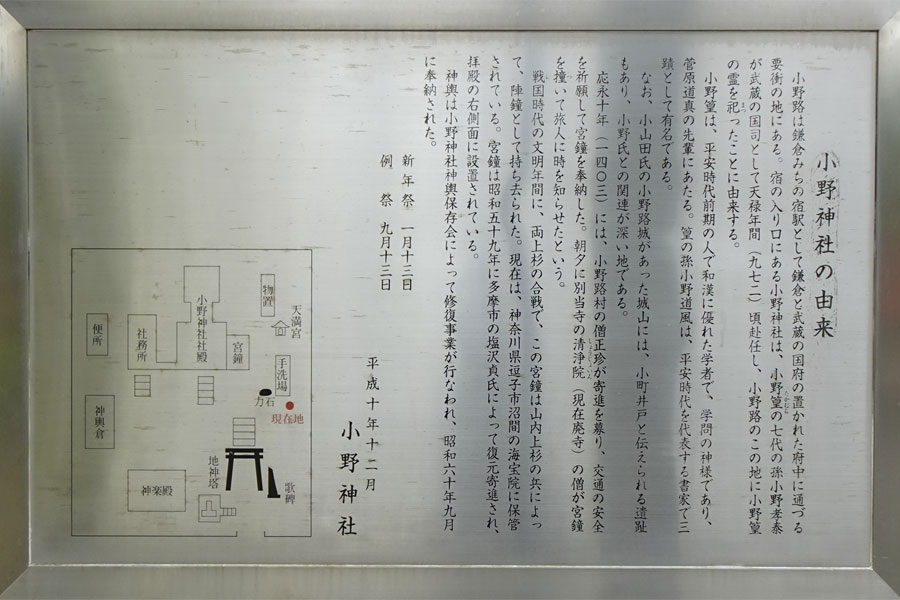 小野神社の由来
小野路は鎌倉みちの宿駅として鎌倉と武蔵の国府の置かれた府中に通づる
要衝の地にある。宿の入り口にある小野神社は、小野篁の七代の孫小野孝泰
たかむら
が武蔵の国司として天禄年間(九七二)頃赴任し、小野路のこの地に小野篁
の霊を祀ったことに由来する。
まつ
小野篁は、平安時代前期の人で和漢に優れた学者で、学問の神様であり、
菅原道真の先輩にあたる。篁の孫小野道風は、平安時代を代表する書家で三
蹟として有名である。
なお、小山田氏の小野路城があった城山には、小町井戸と伝えられる遺趾
もあり、小野氏との関連が深い地である。
応永十年(一四〇三)には、小野路村の僧正珍が寄進を募り、交通の安全
を祈願して宮鐘を奉納した。朝夕に別当寺の清浄院(現在廃寺)の僧が宮鐘
を撞いて旅人に時を知らせたという。
戦国時代の文明年間に、両上杉の合戦で、この宮鐘は山内上杉の兵によっ
て、陣鐘として持ち去られた。現在は、神奈川県逗子市沼間の海宝院に保管
されている。宮鐘は昭和五十九年に多摩市の塩沢貞氏によって復元寄進され、
拝殿の右側面に設置されている。
神輿は小野神社神輿保存会によって修復事業が行なわれ、昭和六十年九月
に奉納された。
新年祭 一月十三日
例 祭 九月十三日
平成十年十二月
小野神社
物置
天満宮
小野神社社殿
宮鐘
手洗場
社務所
便所
力石
現在地
神輿倉
地神塔
歌碑
神楽殿